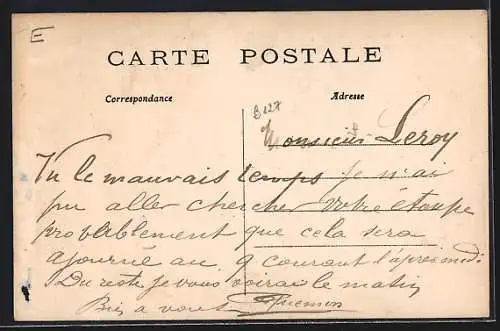 E
CARTE POSTALE
Correspondance
Adresse
B 227
Monsieur Leroy
Vu le mauvais temps je n'ai
pu aller chercher votre étoupe
probablement que cela sera
ajourné au 9 courant l'après midi
Du reste je vous voirai le matin
Bien a vous